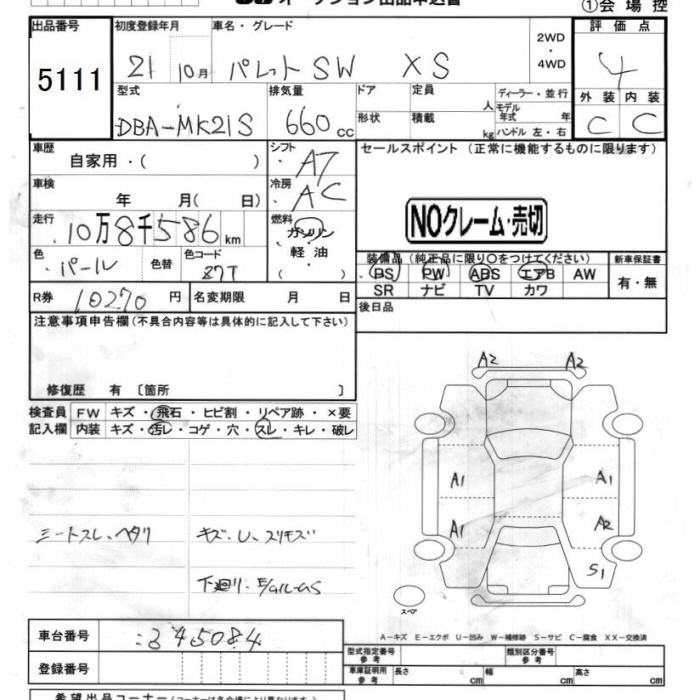 ①会場控
出品番号 初度登録年月 車名・グレード 評価点
5111 21 10月 パレットSW XS 2WD・4WD 4
型式 排気量 ドア 定員 人 ディーラー・並行 外装 内装
DBA-MK21S 660cc 形状 積載 kg モデル年式 年 ハンドル 左・右 C C
車歴 自家用・( ) シフト・AT セールスポイント(正常に機能するものに限ります)
車検 年 月( 日) 冷房・AC
NOクレーム・売切
走行 10万8千586km 燃料 ガソリン・軽油( )
色・パール 色替 色コード Z7T
装備品(純正品に限り○をつけてください) 新車保証書
PS PW ABS エアB AW 有・無
SR ナビ TV カワ
R券 10270円 名変期限 月 日 後日品
注意事項申告欄(不具合内容等は具体的に記入して下さい)
修復歴 有〔箇所 〕
検査員記入欄 FW キズ・飛石・ヒビ割・リペア跡・×要
内装 キズ・汚レ・コゲ・穴・スレ・キレ・破レ
A2 A2
A1 A1
A1 A2
S1
シートスレ、ヘタリ キズ・U、スリキズ
下廻り・
スペア
A-キズ E-エクボ U-凹み W-補修跡 S-サビ C-腐食 XX-交換済
車台番号 :345084
型式指定番号 参考 類別区分番号 参考
登録番号 車庫証明用 参考 長さ cm 幅 cm 高さ cm